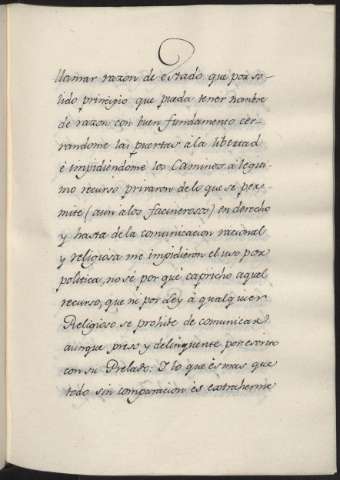 llamar razon de estado que por so-
lido principio que pueda tener nombre
de razon con buen fundamento cer-
randome las puertas à la libertad
è impidiendome los Caminos à legiti-
mo recurso privaron delo que se per-
mite (aun alos facinerosos) en derecho
y hasta de la comunicacion racional
y religiosa me impidieron el uso por
politica, no sè por què capricho aquel
recurso, que ni por Ley à qualquier
Religioso se prohibe de comunicar
aunque preso y delinquente por escrito
con su Prelado: Y lo que es mas que
todo sin comparacion es extraherme